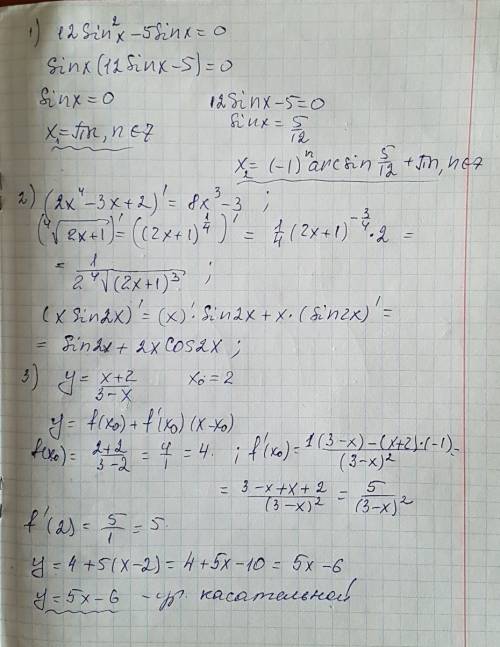 1) 12sin²x-5sinx=0
sinx(12sinx-5)=0
sinx=0 12sinx-5=0
x₁=πn, n∈Z sinx=5/12
x₂=(-1)ⁿarcsin 5/12+πn, n∈Z
2) (2x⁴-3x+2)'=8x³-3 ;
(⁴√(2x+1))'=((2x+1)^(1/4))'=1/4(2x+1)^(-3/4)·2=
=1/(2⁴√(2x+1)³) ;
(xsin2x)'=(x)'·sin2x+x·(sin2x)'=
=sin2x+2xcos2x;
3) y=(x+2)/(3-x) x₀=2
y=f(x₀)+f'(x₀)(x-x₀)
f(x₀)=(2+2)/(3-2)=4/1=4. ; f'(x₀)=(1(3-x)-(x+2)·(-1))/(3-x)²=
=(3-x+x+2)/(3-x)²=5/(3-x)²
f'(2)=5/1=5.
y=4+5(x-2)=4+5x-10=5x-6
y=5x-6 -ур. касательной